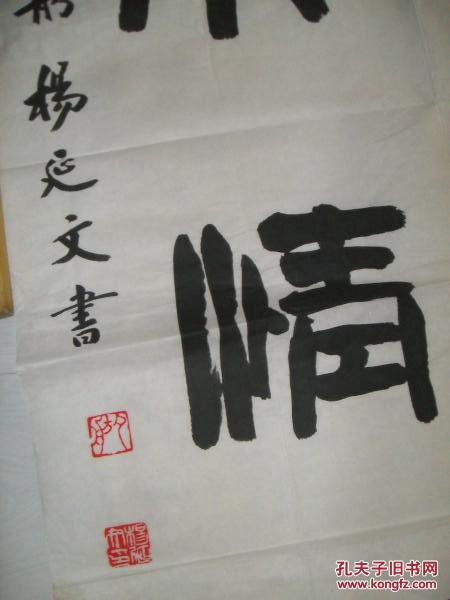 情
楊延文書
楊延文印
孔夫子旧书网
www.kongfz.com